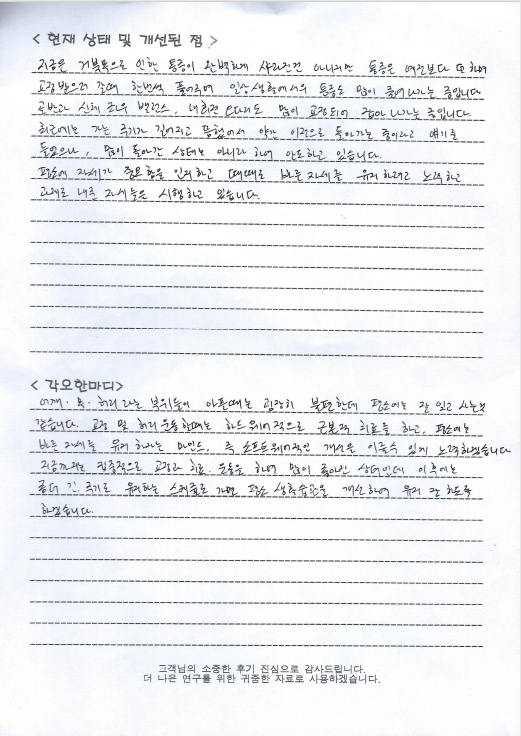 < 현재 상태 및 개선된 점 >
지금은 거북목으로 인한 통증이 완벽하게 사라진건 아니지만 통증은 예전보다 덜하며
교정받으러 올때 한번씩 풀어주며 일상생활에서의 통증도 많이 줄여나가는 중입니다
골반과 신체 좌우 밸런스, 내회전 O다리도 많이 교정되어 잡아나가는 중입니다.
최근에는 가는 주기가 길어지고 뭉쳤어서 약간 이전으로 돌아가는 중이라고 얘기를
들었으나, 많이 돌아간 상태는 아니라 하여 안도하고 있습니다.
평소에 자세가 중요함을 인지하고 때때로 바른자세를 유지하려고 노력하고
과제로 내준 자세들은 시행하고 있습니다.
< 각오한마디>
어깨·목·허리라는 부위들이 아플때는 굉장히 불편한데 평소에는 잘 잊고 사는것
같습니다. 교정 및 허리운동할때는 하드웨어적으로 근본적 치료를 하고, 평소에는
바른 자세를 유지하자는 마인드, 즉 소프트웨어적인 개선을 이룰수 있게 노력하겠습니다
지금까지는 집중적으로 교정과 치료·운동을 하여 많이 좋아진 상태인데 이후에는
좀더 긴 주기로 유지하는 스케줄로 가면 평소 생활습관을 개선하여 유지 잘 하도록
하겠습니다.
고객님의 소중한 후기 진심으로 감사드립니다.
더 나은 연구를 위한 귀중한 자료로 사용하겠습니다.